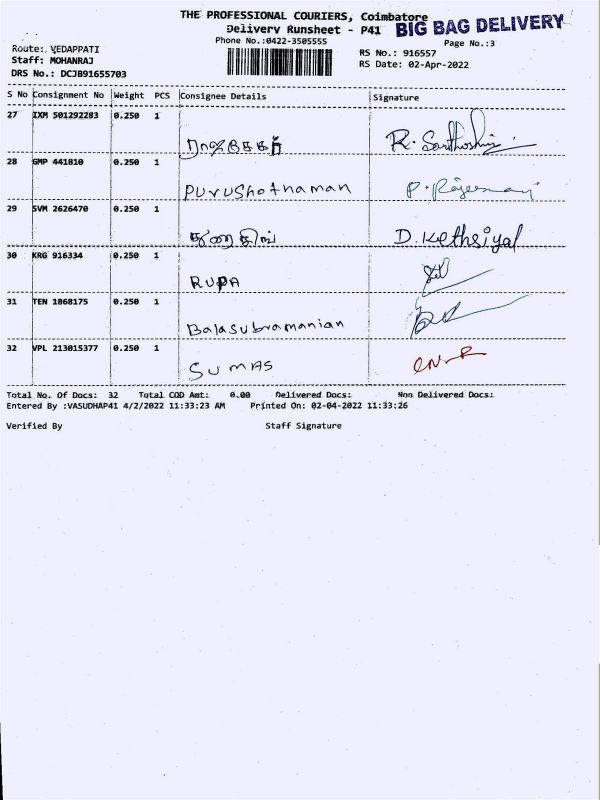 THE PROFESSIONAL COURIERS, Coimbatore
Delivery Runsheet - P41 BIG BAG DELIVERY
Phone No.:0422-3505555 Page No.:3
Route: VEDAPPATI
Staff: MOHANRAJ RS No.: 916557
DRS No.: DCJB91655703 RS Date: 02-Apr-2022
S No Consignment No Weight PCS Consignee Details Signature
27 IXM 501292283 0.250 1
R. Santhoshini
28 GMP 441810 0.250 1
Purushothaman
29 SVM 2626470 0.250 1
D. Kethsiyal
30 KRG 916334 0.250 1
RUPA
31 TEN 1868175 0.250 1
Balasubramanian
32 VPL 213015377 0.250 1
SUMAS
Total No. Of Docs: 32 Total COD Amt: 0.00 Delivered Docs: Non Delivered Docs:
Entered By :VASUDHAP41 4/2/2022 11:33:23 AM Printed On: 02-04-2022 11:33:26
Verified By Staff Signature